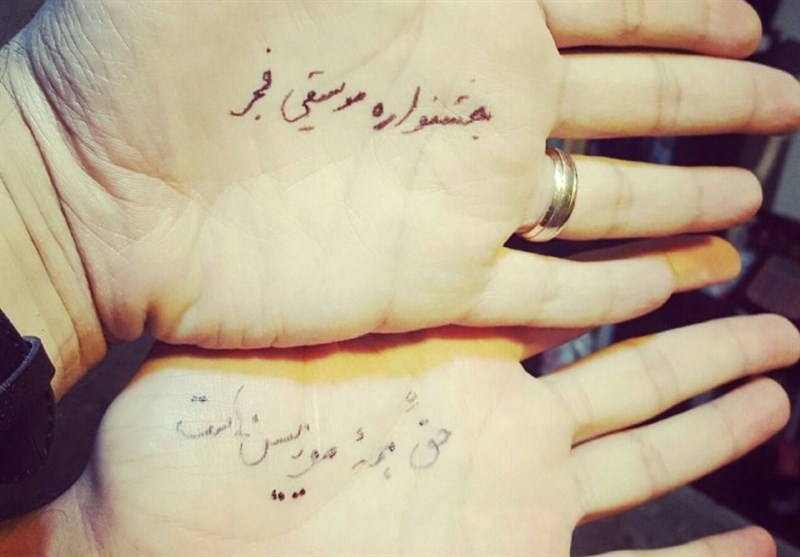 جشنواره موسیقی فجر
حقِ همهٔ موزیسین‌هاست